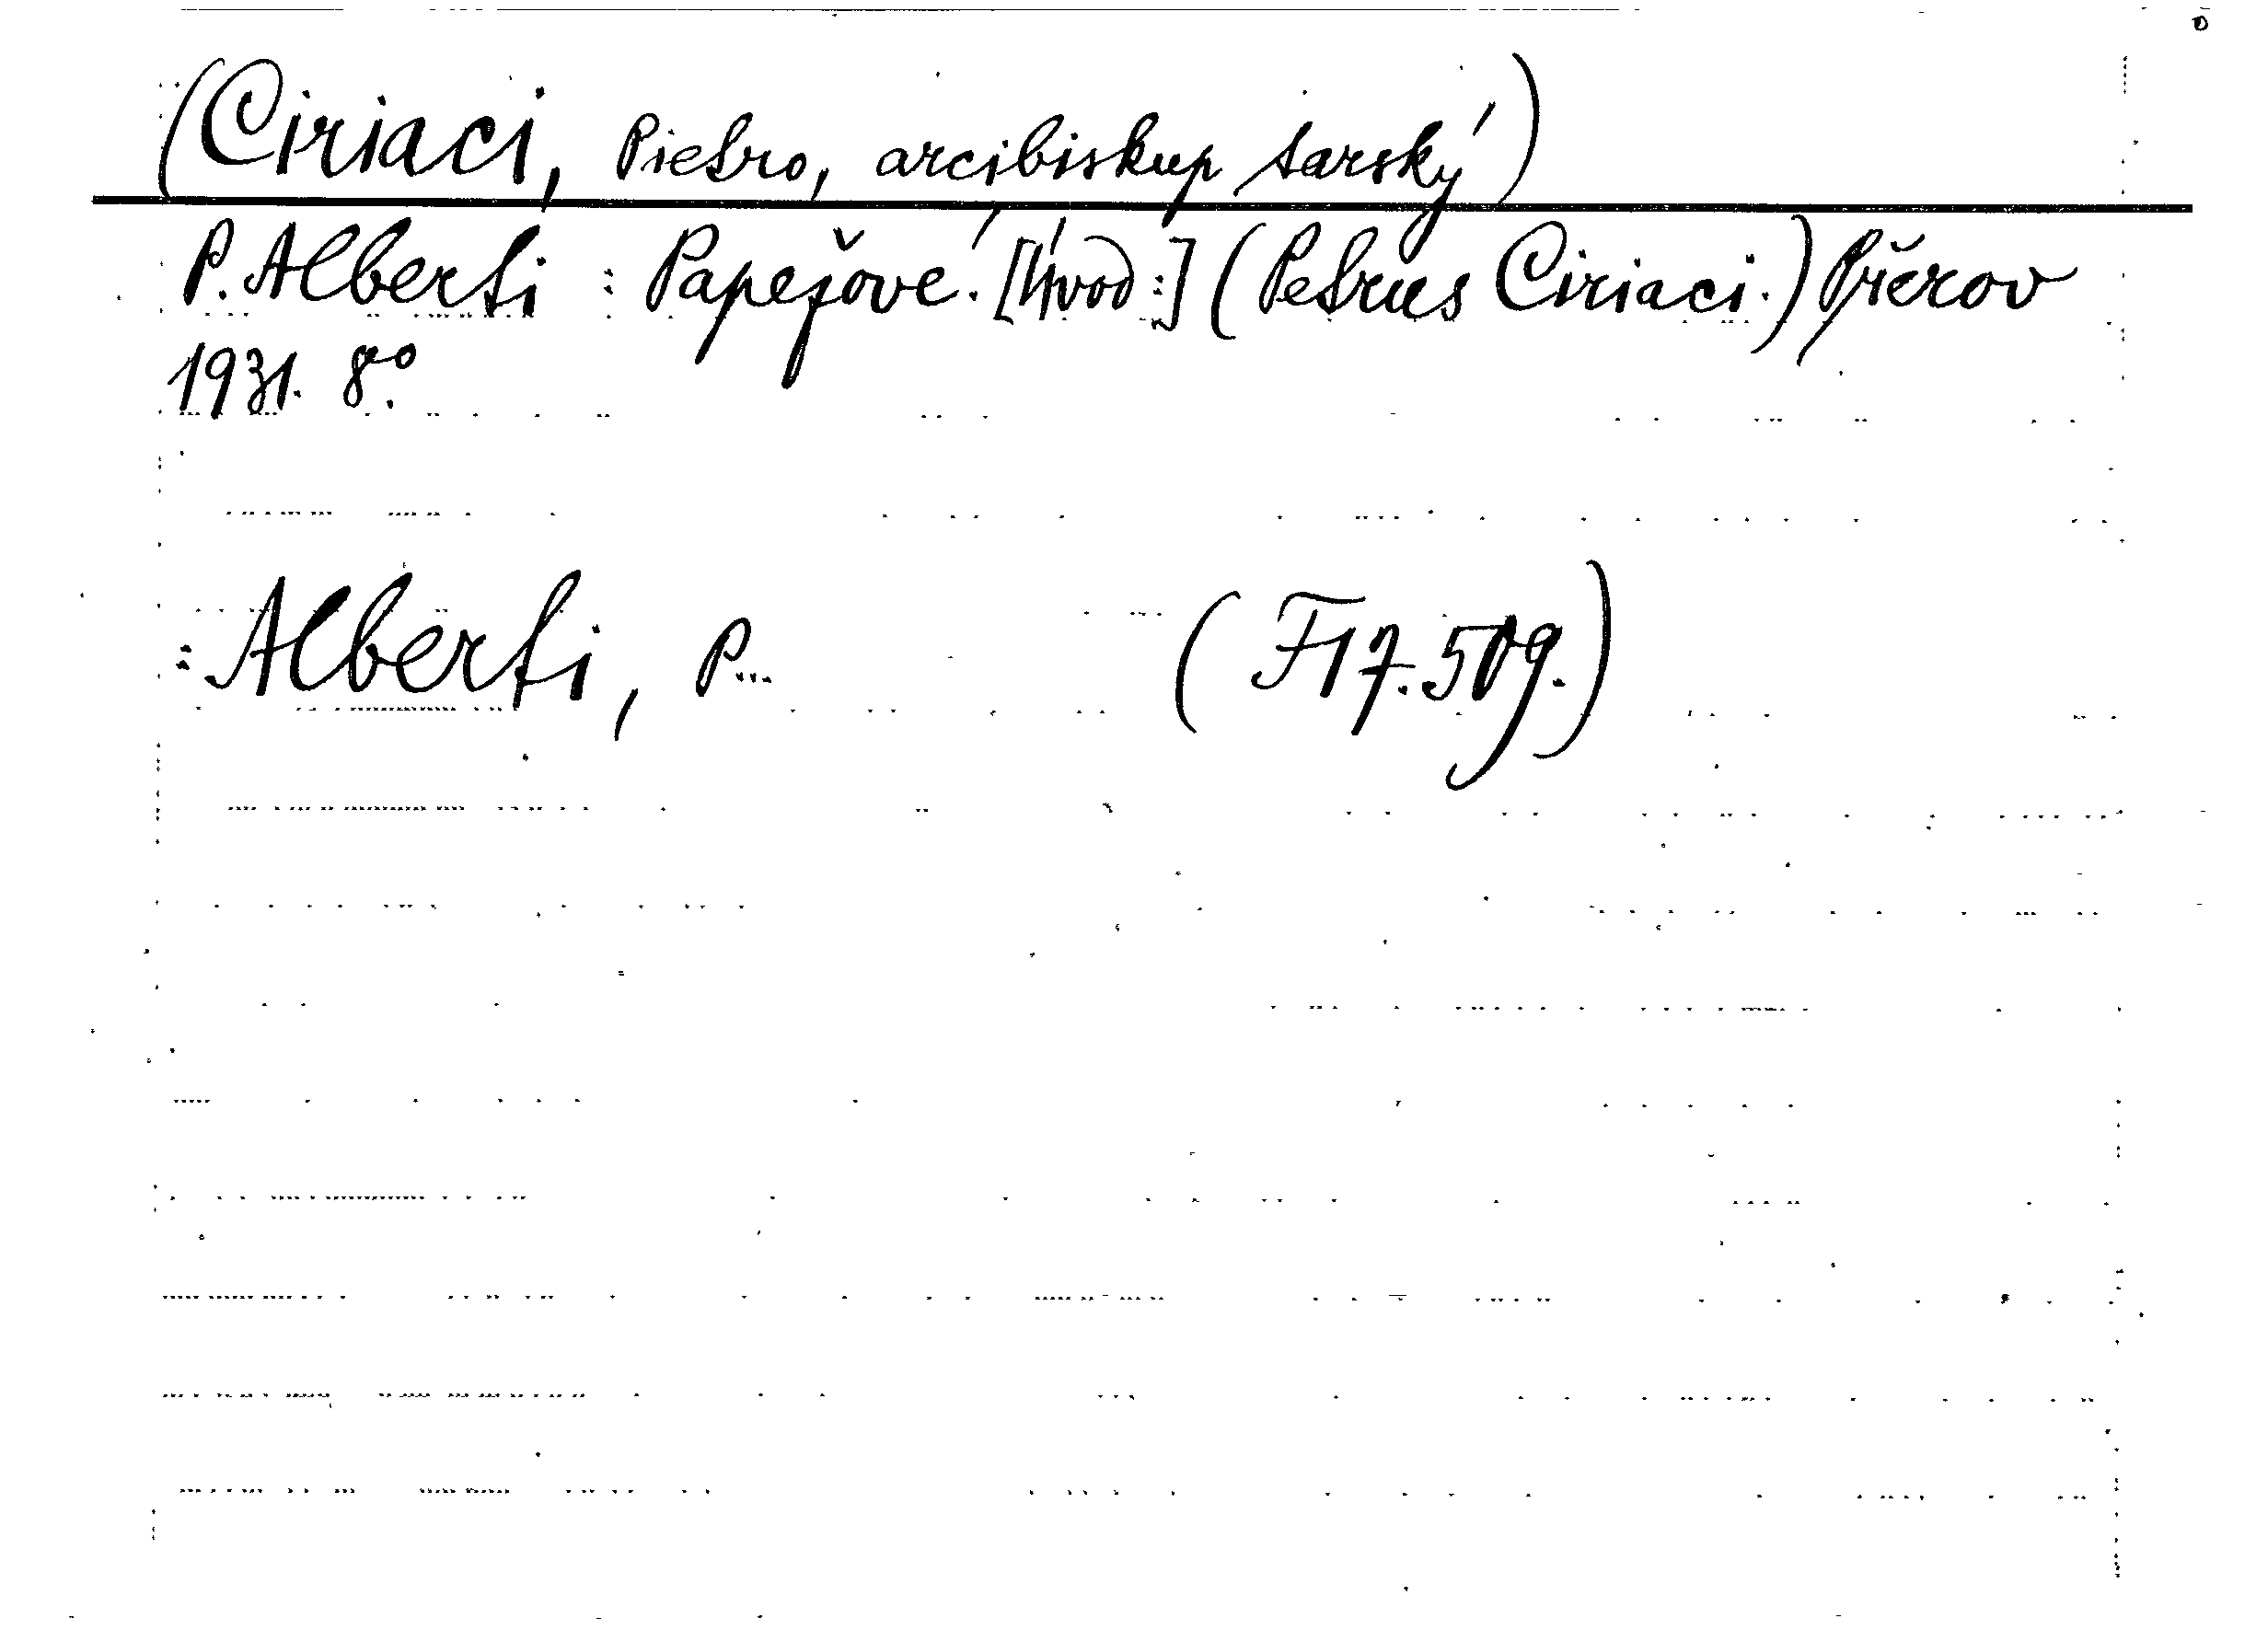 (Ciriaci, Pietro, arcibiskup tarský)
P. Alberti: Papežové. [Úvod:] (Petrus Ciriaci.) Přerov
1931. 8°.
: Alberti, P... (F 17.509.)